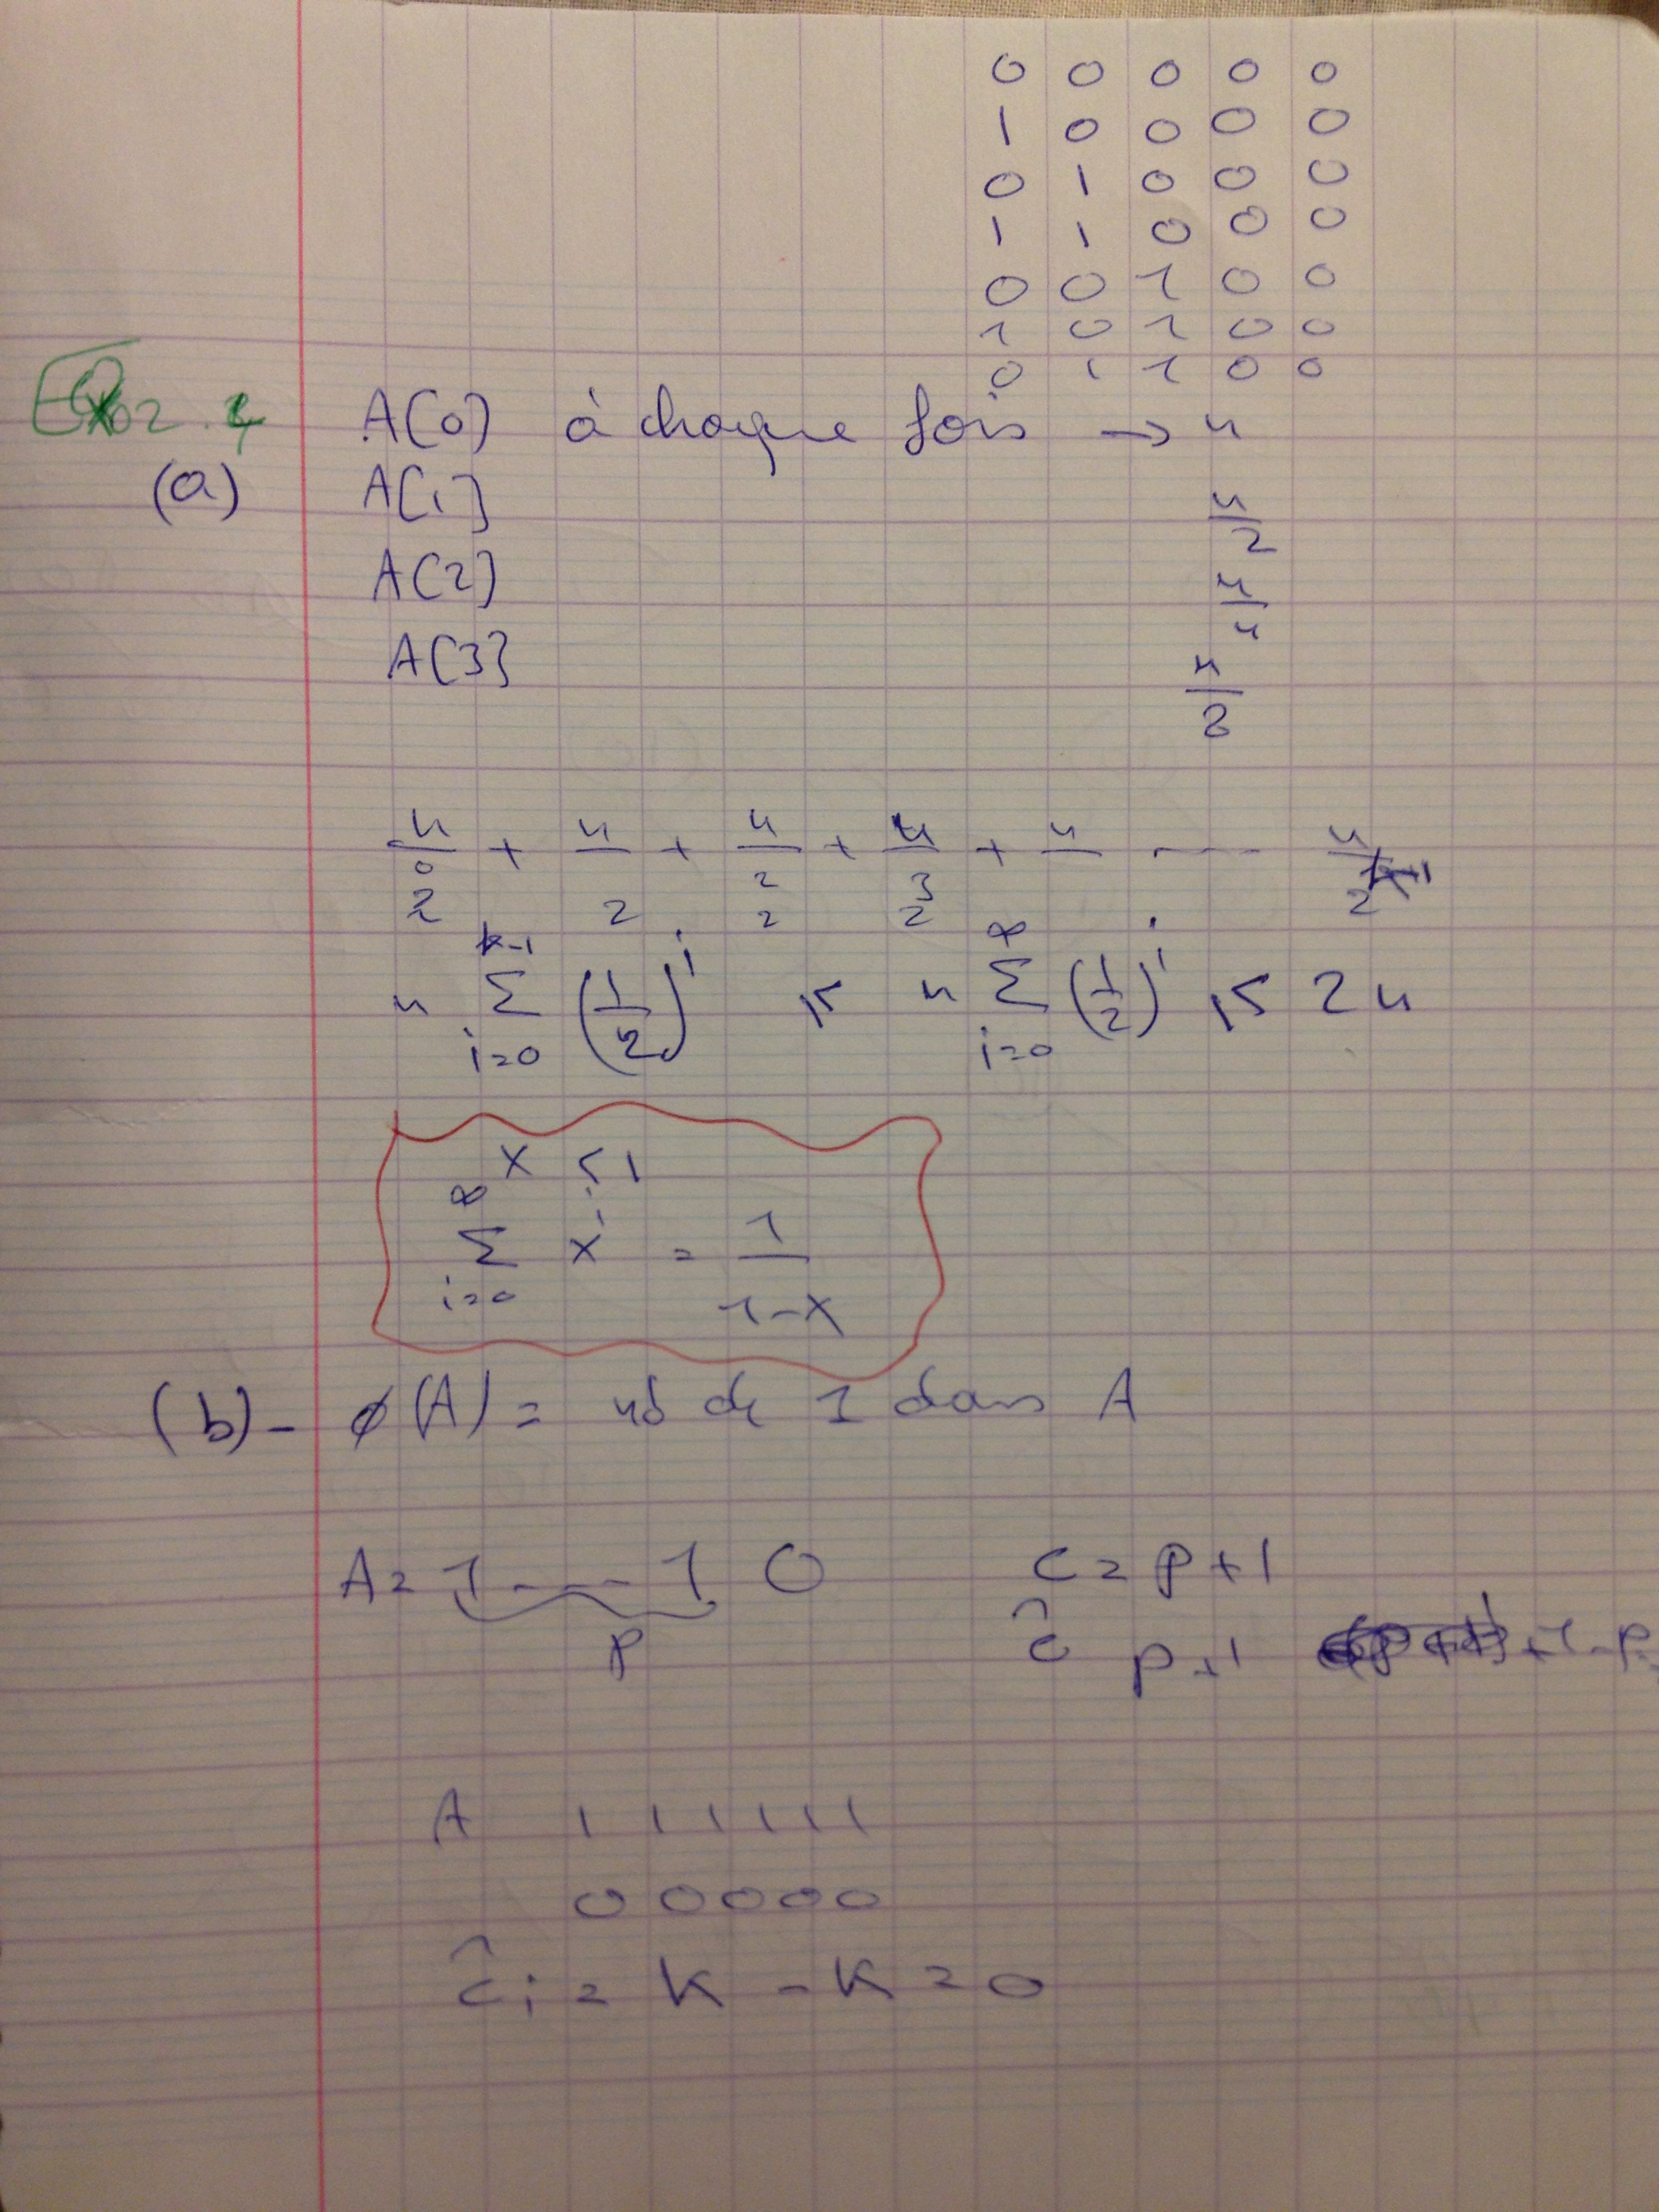 0 0 0 0 0
1 0 0 0 0
0 1 0 0 0
1 1 0 0 0
0 0 1 0 0
1 0 1 0 0
0 1 1 0 0
A[0] à chaque fois → n
(a) A[1] n/2
A[2] n/4
A[3] n/8
n/2^0 + n/2 + n/2^2 + n/2^3 + n/ ---- n/2^(k-1)
n Σ_{i=0}^{k-1} (1/2)^i ≤ n Σ_{i=0}^{∞} (1/2)^i ≤ 2n
x < 1
Σ_{i=0}^{∞} x^i = 1/(1-x)
(b) - ϕ(A) = nb de 1 dans A
A = 1 --- 1 0 c = p+1
p ĉ p+1
A 1 1 1 1 1 1
0 0 0 0 0
ĉi = k - k = 0